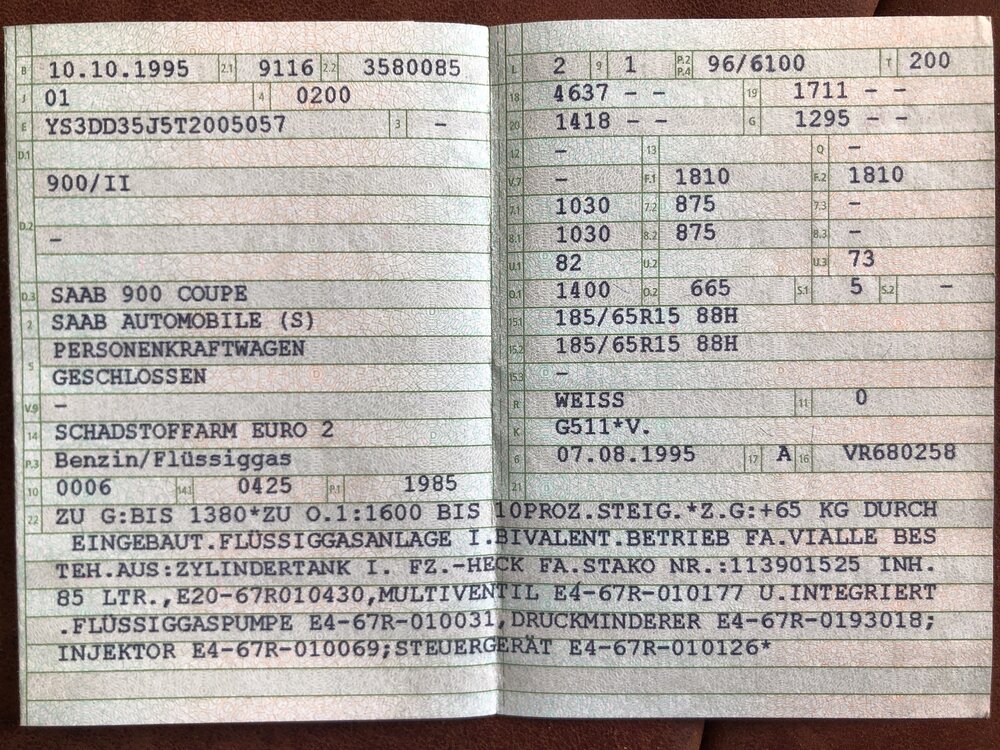 B 10.10.1995 2.1 9116 2.2 3580085
J 01 4 0200
E YS3DD35J5T2005057 3 –
D.1
900/II
D.2
–
D.3 SAAB 900 COUPE
2 SAAB AUTOMOBILE (S)
5 PERSONENKRAFTWAGEN
GESCHLOSSEN
V.9 –
14 SCHADSTOFFARM EURO 2
P.3 Benzin/Flüssiggas
10 0006 14.1 0425 P.1 1985
L 2 9 1 P.2 P.4 96/6100 T 200
18 4637 – – 19 1711 – –
20 1418 – – G 1295 – –
12 – 13 Q –
V.7 – F.1 1810 F.2 1810
7.1 1030 7.2 875 7.3 –
8.1 1030 8.2 875 8.3 –
U.1 82 U.2 U.3 73
O.1 1400 O.2 665 S.1 5 S.2 –
15.1 185/65R15 88H
15.2 185/65R15 88H
15.3 –
R WEISS 11 0
K G511*V.
6 07.08.1995 17 A 16 VR680258
21
22 ZU G:BIS 1380*ZU O.1:1600 BIS 10PROZ.STEIG.*Z.G:+65 KG DURCH
EINGEBAUT.FLÜSSIGGASANLAGE I.BIVALENT.BETRIEB FA.VIALLE BES
TEH.AUS:ZYLINDERTANK I. FZ.-HECK FA.STAKO NR.:113901525 INH.
85 LTR.,E20-67R010430,MULTIVENTIL E4-67R-010177 U.INTEGRIERT
.FLÜSSIGGASPUMPE E4-67R-010031,DRUCKMINDERER E4-67R-0193018;
INJEKTOR E4-67R-010069;STEUERGERÄT E4-67R-010126*